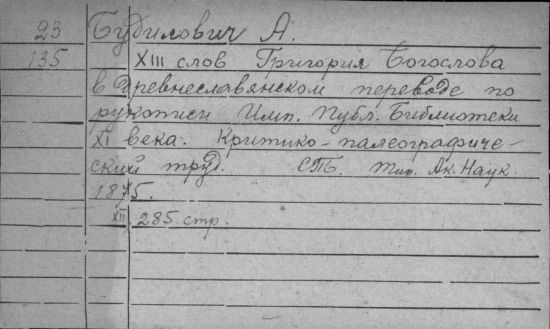 23 Будилович А.
135 XIII слов Григория Богослова
в древнеславянском переводе по
рукописи Имп. Публ. Библиотеки
XI века. Критико-палеографиче-
ский труд. СПБ. Тип. Ак. Наук.
1875.
XII 285 стр.